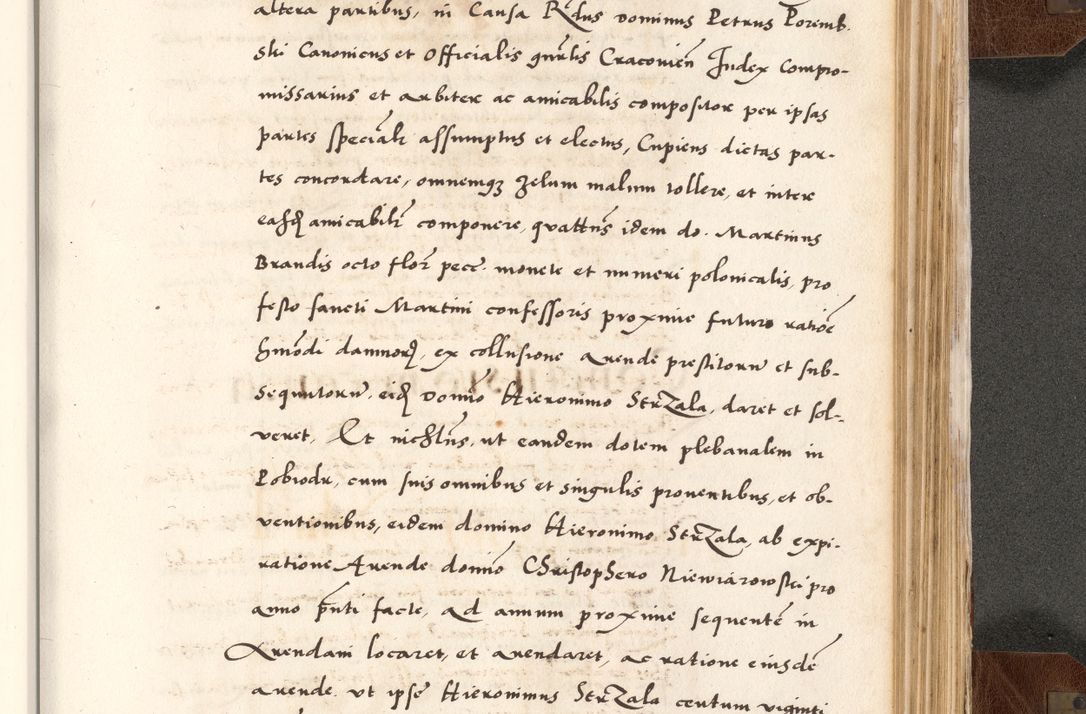 altera partibus, in Causa R̃dus Dominus Petrus Poremb.
ski Canonicus et Officialis gñrlis Cracovieñ Iudex Compro-
missarius et arbiter ac amicabilis compositor per ipsas
partes speciālr assumptus et electus, Cupiens dictas par-
tes concordare, omnemqȝ zelum malum tollere, et inter
easdꝫ amicabilr̃ componere, quattñs idem do. Martinus
Brandis octo flor̃ pecc. monete et numeri polonicalis, pro
festo sancti Martini confessoris proxime futuro ratiōe
hm̃odi damnorꝫ, ex collusione arende prestitorũ et sub-
sequutorũ, eidꝫ Domĩo Hieronimo Strzala, daret et sol-
veret, Et nichlr̃s, ut eandem dotem plebanalem in
Pobiodr, cum suis omnibus et singulis proventibus, et ob-
ventionibus, eidem domino Hieronimo Strzala, ab expi-
ratione Arende domĩo Christophero Niewiarowski pro
anno pñti facte, ad annum proxime sequentẽ in
Arendam locaret, et arendaret, ac ratione eiusdẽ
arende ut ipse Hieronimus Strzala centum viginti